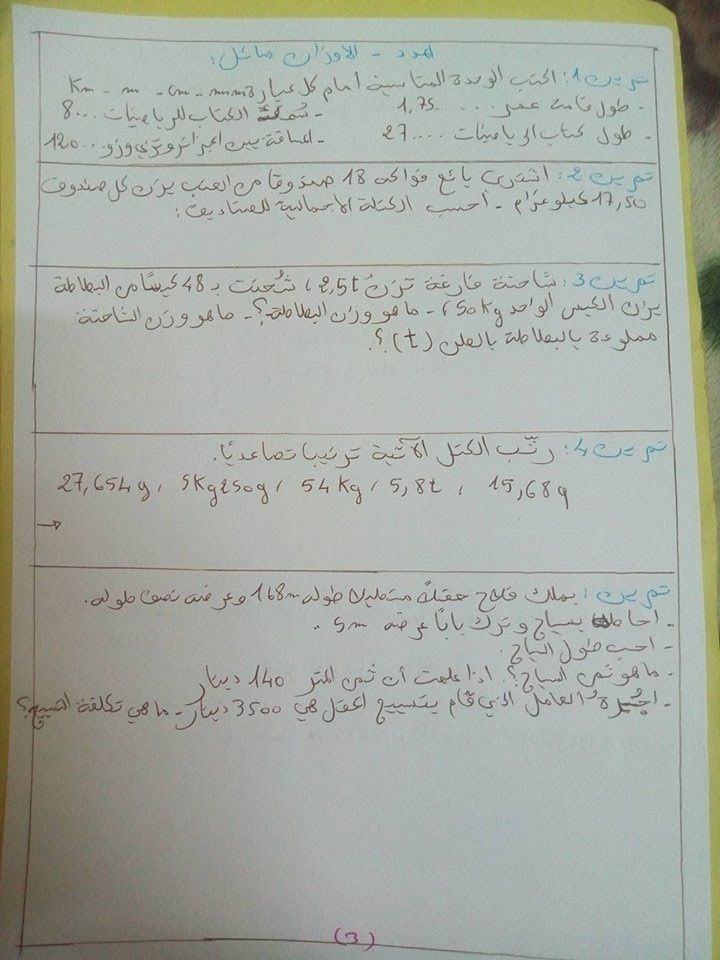 المدد - الأوزان مسائل:
تمرين 1: اكتب الوحدة المناسبة أمام كل عبارة Km - m - cm - mm
- طول قامة عمر .... 1,75 - سُمك الكتاب للرياضيات .... 8
- طول كتاب الرياضيات .... 27 - المسافة بين الجزائر وتيزي وزو... 120
تمرين 2: اشترى بائع فواكه 18 صندوقا من العنب يزن كل صندوق
17,50 كيلوغرام - أحسب الكتلة الاجمالية للصناديق:
تمرين 3: شاحنة فارغة تزن 2,5t، شُحنت بـ 48 كيسًا من البطاطة
يزن الكيس الواحد 50 kg، - ماهو وزن البطاطة؟ - ماهو وزن الشاحنة
مملوءة بالبطاطة بالطن (t)؟.
تمرين 4: رتّب الكتل الآتية ترتيبا تصاعديًا.
27,654 g، 5Kg250g، 54 Kg، 5,8t، 15,68g
→
تمرين: يملك فلاح حقلاً مستطيلا طوله 168m وعرضه نصف طوله.
- احاطه بسياج وترك بابًا عرضه 5m.
- احسب طول السياج.
- ماهو ثمن السياج؟. اذا علمت أن ثمن المتر 140 دينار
- اجُرة العامل الذي قام بتسييج الحقل هي 3500 دينار - ما هي تكلفة التسييج؟
(3)